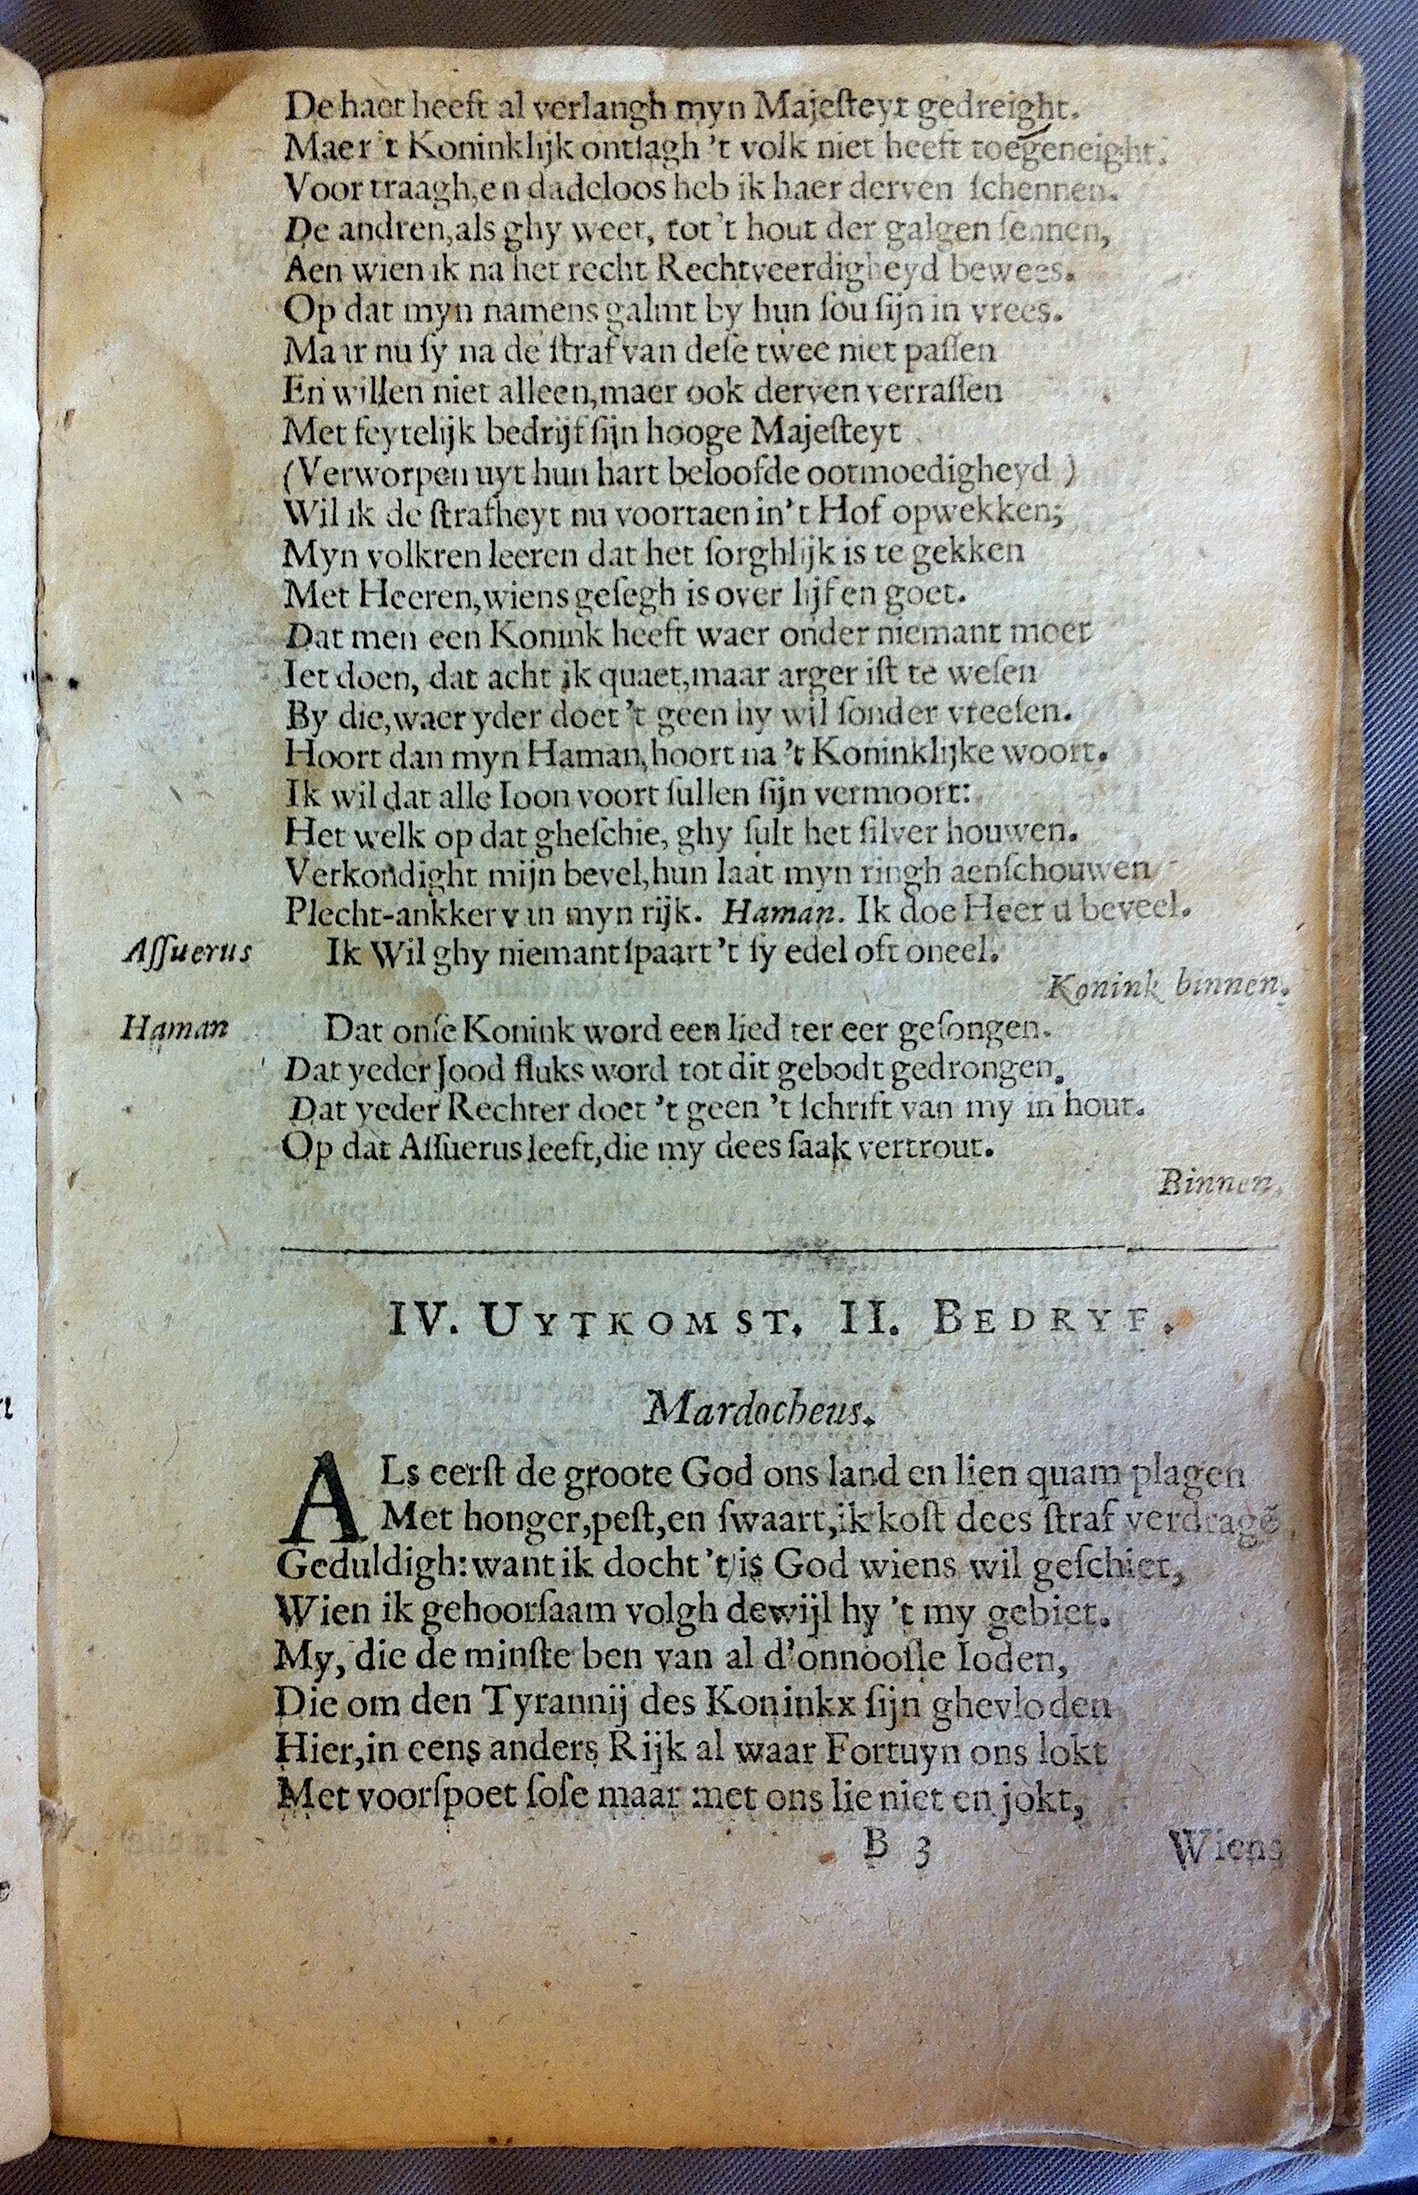 De haet heeft al verlangh myn Majeſteyt gedreight.
Maer 't Koninklijk ontſagh 't volk niet heeft toegeneight.
Voor traagh, en dadeloos heb ik haer derven ſchennen.
De andren, als ghy weet, tot 't hout der galgen ſennen,
Aen wien ik na het recht Rechtveerdigheyd bewees.
Op dat myn namens galmt by hun ſou ſijn in vrees.
Maar nu ſy na de ſtraf van deſe twee niet paſſen
En willen niet alleen, maer ook derven verraſſen
Met feytelijk bedrijf ſijn hooge Majeſteyt
(Verworpen uyt hun hart beloofde ootmoedigheyd)
Wil ik de ſtrafheyt nu voortaen in 't Hof opwekken;
Myn volkren leeren dat het ſorghlijk is te gekken
Met Heeren, wiens geſegh is over lijf en goet.
Dat men een Konink heeft waer onder niemant moet
Iet doen, dat acht ik quaet, maar arger iſt te weſen
By die, waer yder doet 't geen hy wil ſonder vreeſen.
Hoort dan myn Haman, hoort na 't Koninklijke woort.
Ik wil dat alle Ioon voort ſullen ſijn vermoort:
Het welk op dat gheſchie, ghy ſult het ſilver houwen.
Verkondight mijn bevel, hun laat myn ringh aenſchouwen
Plecht-ankker v in myn rijk. Haman. Ik doe Heer u beveel.
Aſſuerus Ik Wil ghy niemant ſpaart 't ſy edel oft oneel.
Konink binnen.
Haman Dat onſe Konink word een lied ter eer geſongen.
Dat yeder Jood fluks word tot dit gebodt gedrongen.
Dat yeder Rechter doet 't geen 't ſchrift van my in hout.
Op dat Aſſuerus leeft, die my dees ſaak vertrout.
Binnen.
IV. UYTKOMST. II. BEDRYF.
Mardocheus.
ALs eerſt de groote God ons land en lien quam plagen
Met honger, peſt, en ſwaart, ik koſt dees ſtraf verdragẽ
Geduldigh: want ik docht 't is God wiens wil geſchiet,
Wien ik gehoorſaam volgh dewijl hy 't my gebiet.
My, die de minſte ben van al d'onnooſle Ioden,
Die om den Tyrannij des Koninkx ſijn ghevloden
Hier, in eens anders Rijk al waar Fortuyn ons lokt
Met voorſpoet ſoſe maar met ons lie niet en jokt,
B 3 Wiens